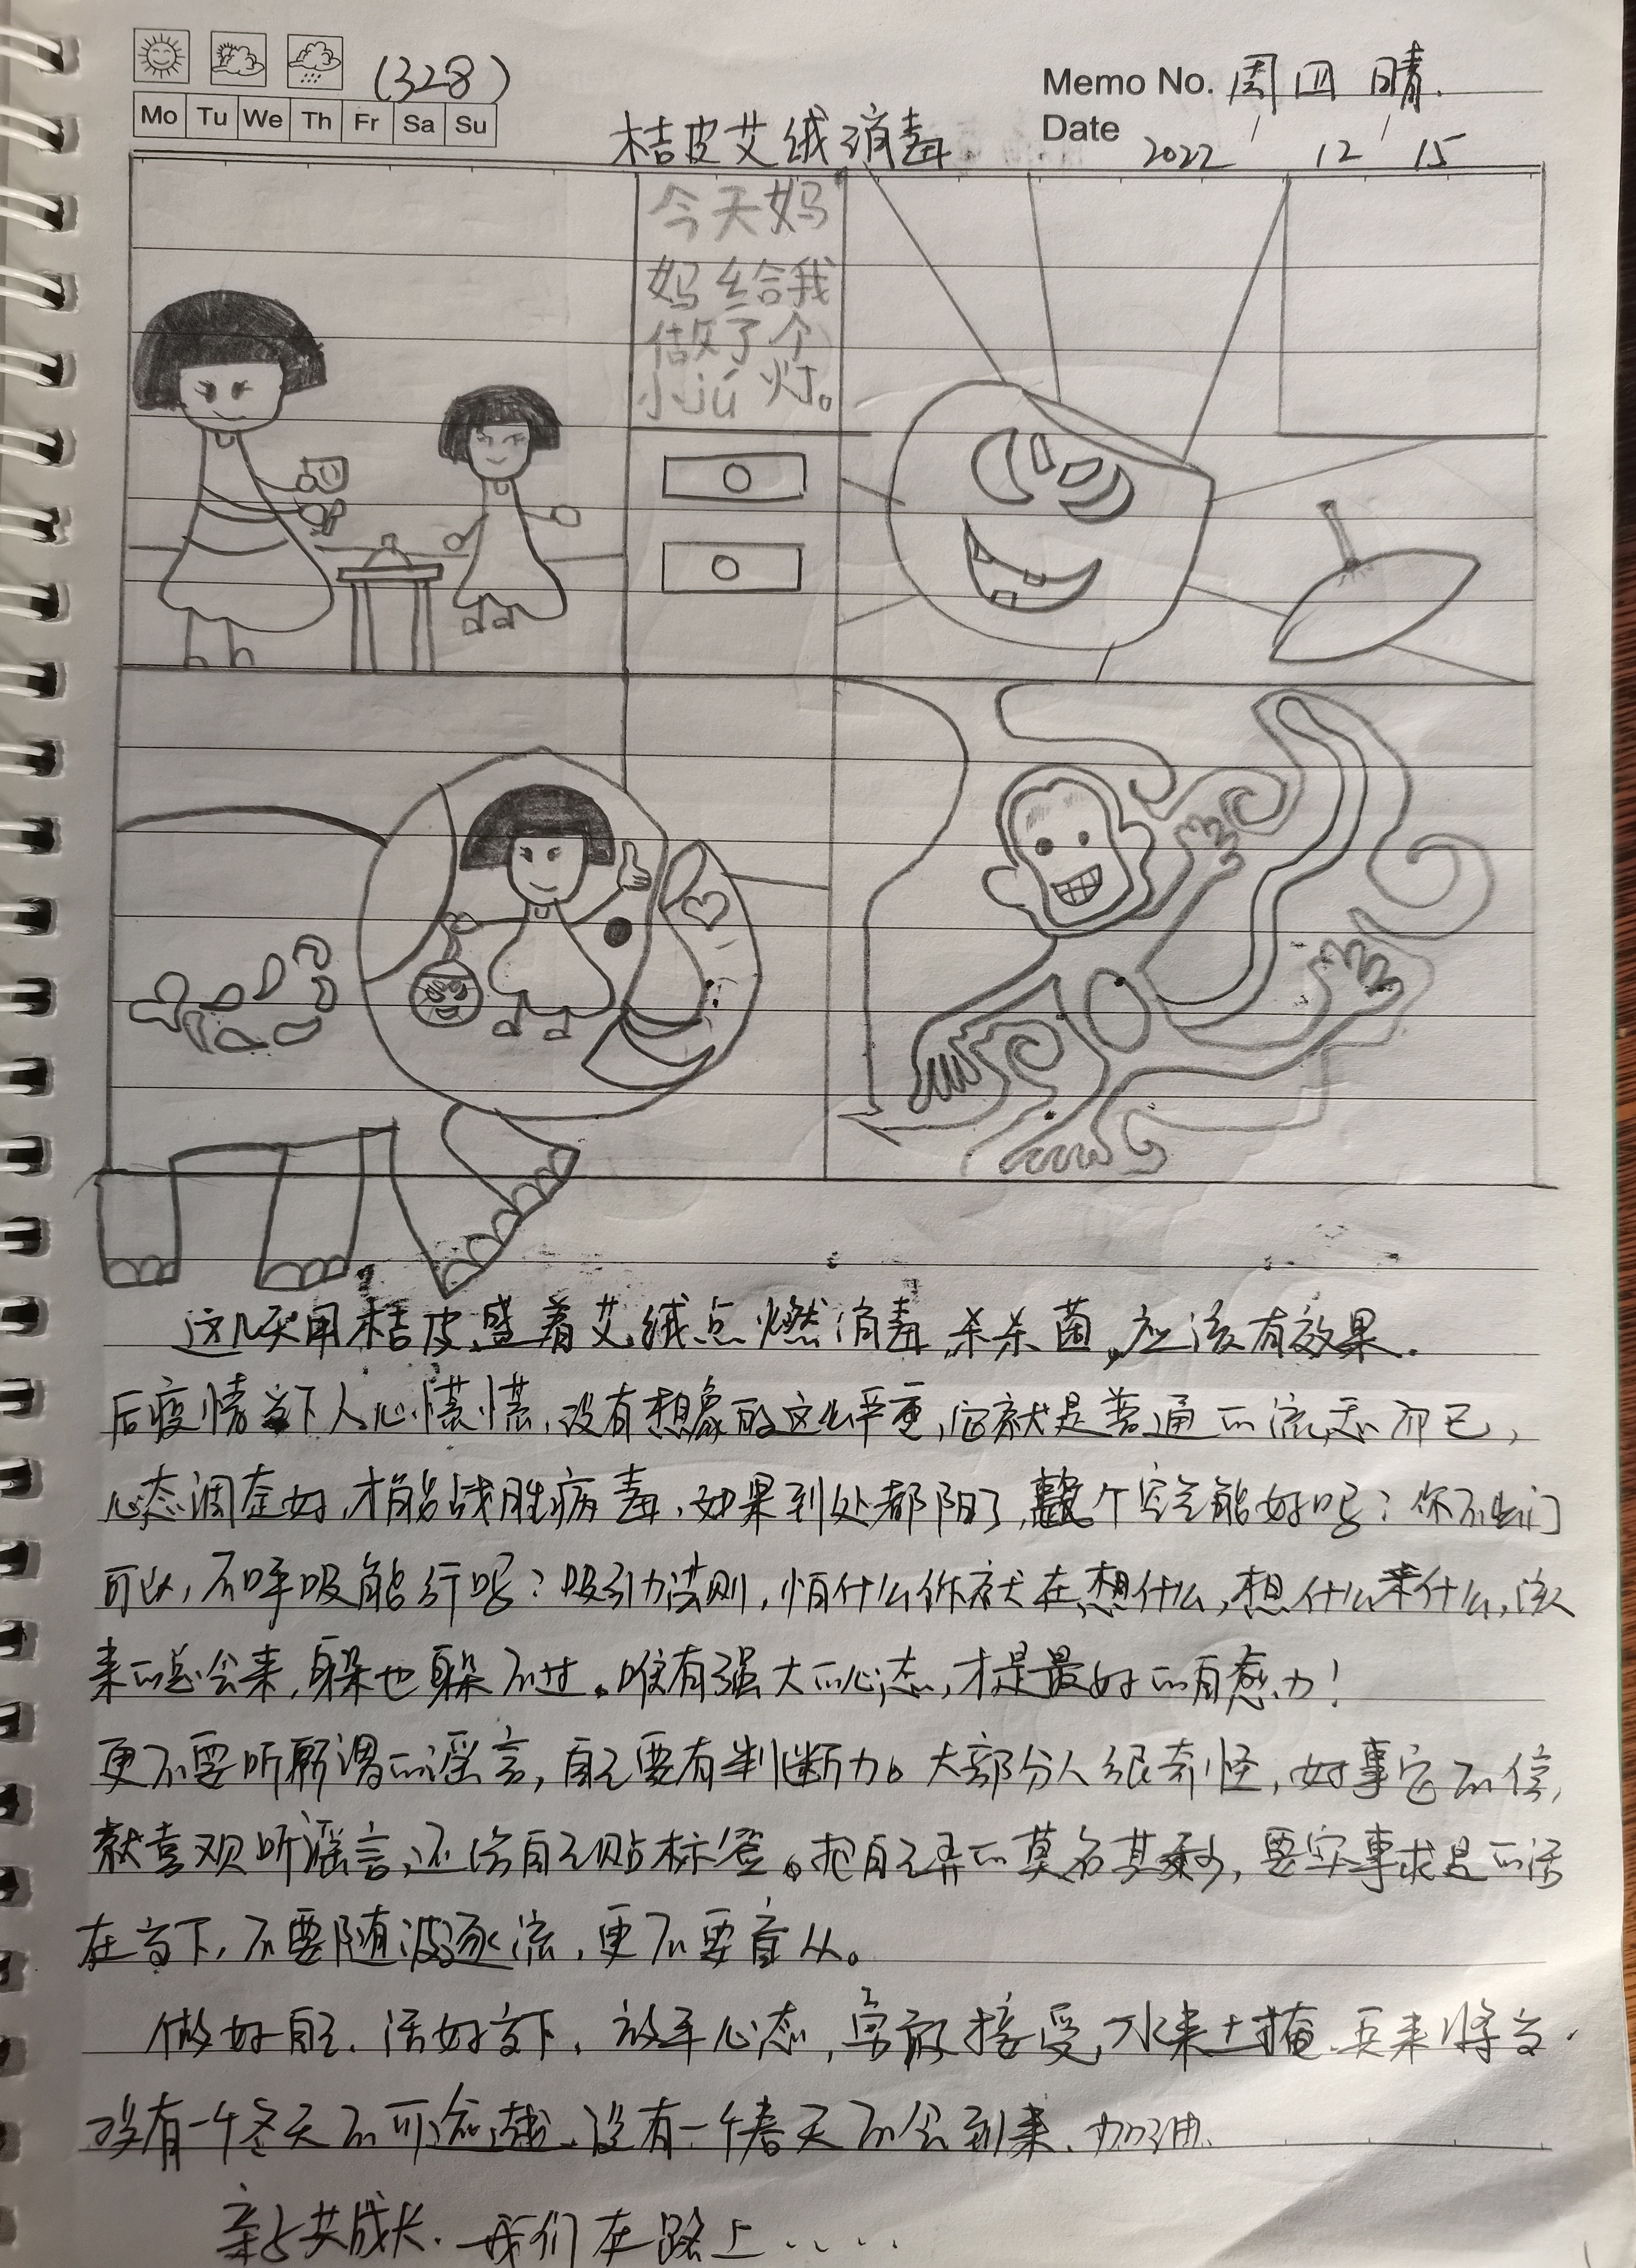 (328)
Memo No. 周四 晴.
Mo Tu We Th Fr Sa Su
Date 2022 / 12 / 15
桔皮艾绒消毒
今天妈
妈给我
做了个
小jú灯。
这几天用桔皮盛着艾绒点燃消毒,杀杀菌,应该有效果.
后疫情当下人心慌慌,没有想象的这么严重,它就是普通的流感而已,
心态调整好,才能战胜病毒,如果到处都阳了,整个空气能好吗?你不出门
可以,不呼吸能行吗?吸引力法则,怕什么你就在想什么,想什么来什么,该
来的总会来,躲也躲不过。唯有强大的心态,才是最好的免疫力!
更不要听所谓的谣言,自己要有判断力。大部分人很奇怪,好事它不信,
就喜欢听谣言,还给自己贴标签。把自己弄的莫名其妙,要实事求是的活
在当下,不要随波逐流,更不要盲从。
做好自己,活好当下,放平心态,勇敢接受,水来土掩,兵来将当.
没有一个冬天不可逾越,没有一个春天不会到来,加油.
亲子共成长.我们在路上.....